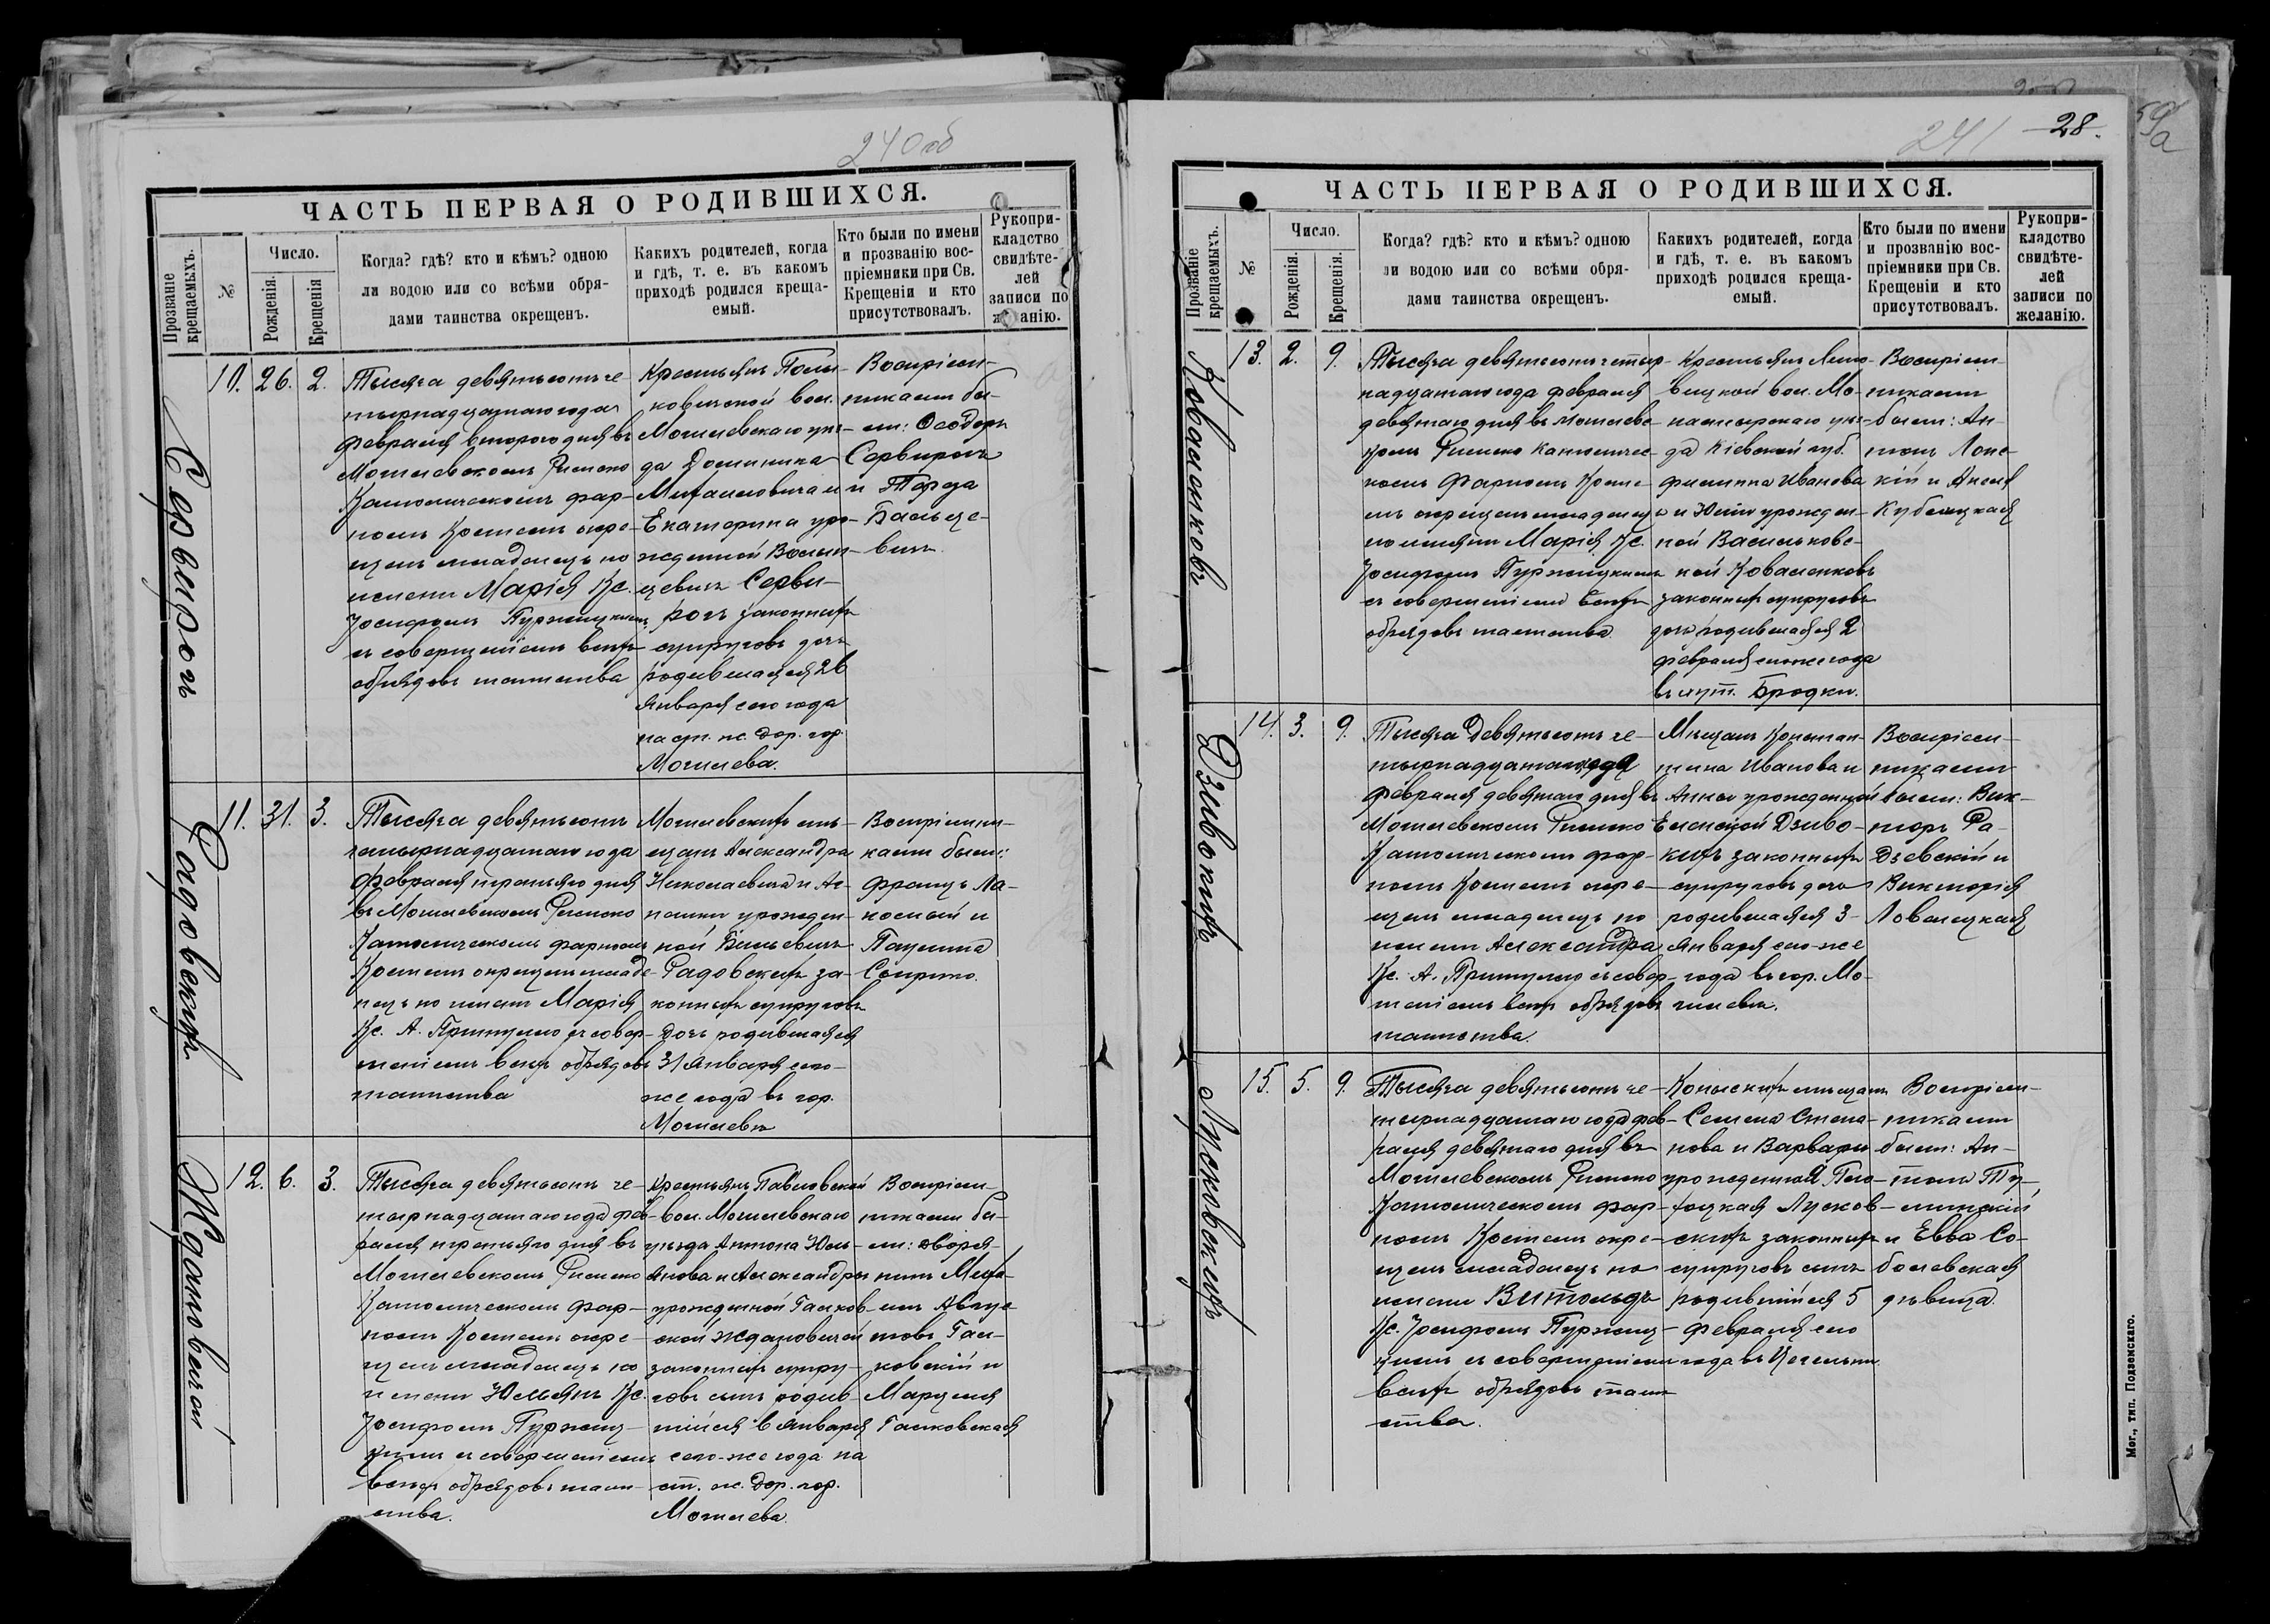 240 об
ЧАСТЬ ПЕРВАЯ О РОДИВШИХСЯ.
Прозваніе крещаемыхъ.
№
Число.
Рожденія.
Крещенія
Когда? гдѣ? кто и кѣмъ? одною
ли водою или со всѣми обря-
дами таинства окрещенъ.
Какихъ родителей, когда
и гдѣ, т. е. въ какомъ
приходѣ родился креща-
емый.
Кто были по имени
и прозванію вос-
пріемники при Св.
Крещеніи и кто
присутствовалъ.
Рукопри-
кладство
свидѣте-
лей
записи по
желанію.
Сервирогъ
10. 26. 2.
Тысяча девятьсотъ че-
тырнадцатаго года
Февраля второго дня въ
Могилевскомъ Римско
Католическомъ фар-
номъ Костелѣ окре-
щенъ младенецъ по
имени Марія Кс.
Іосифомъ Пуржицкимъ
съ совершеніемъ всѣхъ
обрядовъ таинства
Крестьянъ
ковичской вол.
Могилевскаго уѣз-
да Доминика
Михайловича и
Екатерина уро-
жденной
цевичъ Серви-
рогъ законныхъ
супруговъ дочь
родившаяся 26
января сего года
на ст. ж. дор. гор.
Могилева.
Воспріем-
никами бы-
ли: Ѳеодоръ
Сервирогъ
и
Бальце-
вичъ.
Радовскихъ
11. 31. 3.
Тысяча девятьсотъ
четырнадцатаго года
Февраля третьяго дня
въ Могилевскомъ Римско
Католическомъ фарномъ
Костелѣ окрещенъ младе-
нецъ по имени Марія
Кс. А. Пришуло съ совер-
шеніемъ всѣхъ обрядовъ
таинства
Могилевскихъ мѣ-
щанъ Александра
Николаевича и Аг-
нешки урожден-
ной Билевичъ
Радовскихъ за-
конныхъ супруговъ
дочь родившаяся
31 января сего-
же года въ гор.
Могилевѣ
Воспріемни-
ками были:
Францъ Ла-
и
Паулина
Ждановичей
12. 6. 3.
Тысяча девятьсотъ че-
тырнадцатаго года фев-
раля третьяго дня въ
Могилевскомъ Римско
Католическомъ фар-
номъ Костелѣ окре-
щенъ младенецъ по
имени Юльянъ Кс.
Іосифомъ Пуржиц-
кимъ съ совершеніемъ
всѣхъ обрядовъ таин-
ства.
Крестьянъ Павловской
вол. Могилевскаго
уѣзда Антона Юль-
янова и Александры
урожденной Галков-
ской Ждановичей
законныхъ супру-
говъ сынъ родив-
шійся 6 января
сего-же года на
ст. ж. дор. гор.
Могилева.
Воспріем-
никами бы-
ли: дворя-
нинъ Миха-
илъ
товъ Гал-
ковскій и
Марцеля
Галковская
241 28.
59а
ЧАСТЬ ПЕРВАЯ О РОДИВШИХСЯ.
Прозваніе крещаемыхъ.
№
Число.
Рожденія.
Крещенія.
Когда? гдѣ? кто и кѣмъ? одною
ли водою или со всѣми обря-
дами таинства окрещенъ.
Какихъ родителей, когда
и гдѣ, т. е. въ какомъ
приходѣ родился креща-
емый.
Кто были по имени
и прозванію вос-
пріемники при Св.
Крещеніи и кто
присутствовалъ.
Рукопри-
кладство
свидѣте-
лей
записи по
желанію.
Коваленковъ
13. 2. 9.
Тысяча девятьсотъ четыр-
надцатаго года февраля
девятаго дня въ Могилевс-
комъ Римско Католичес-
комъ Фарномъ Косте-
лѣ окрещенъ младенецъ
по имени Марія Кс.
Іосифомъ Пуржицкимъ
съ совершеніемъ всѣхъ
обрядовъ таинства.
Крестьянъ
вицкой вол.
уѣз-
да Кіевской губ.
Филиппа Иванова
и Юліи урожден-
ной Васильковс-
кой Коваленковъ
законныхъ супруговъ
дочь родившаяся 2
февраля сего-же года
въ Бродки.
Воспріем-
никами
были: Ан-
тонъ Лопс-
кій и Анеля
Кубелицкая
Дзивокихъ
14. 3. 9.
Тысяча девятьсотъ че-
тырнадцатаго года
Февраля девятаго дня въ
Могилевскомъ Римско
Католическомъ фар-
номъ Костелѣ окре-
щенъ младенецъ по
имени Александра
Кс. А. Пришуло съ совер-
шеніемъ всѣхъ обрядовъ
таинства.
Мѣщанъ Констан-
тина Иванова и
Анны урожденной
Еленской Дзиво-
кихъ законныхъ
супруговъ дочь
родившаяся 3-
января сего-же
года въ гор. Мо-
гилевѣ.
Воспріем-
никами
были: Вик-
торъ Ра-
дзевскій и
Викторія
Ловелецкая
Лусковскихъ
15. 5. 9.
Тысяча девятьсотъ че-
тырнадцатаго года фев-
раля девятаго дня въ
Могилевскомъ Римско
Католическомъ фар-
номъ Костелѣ окре-
щенъ младенецъ по
имени Витольдъ
Кс. Іосифомъ Пуржиц-
кимъ съ совершеніемъ
всѣхъ обрядовъ таин-
ства.
Копыскихъ мѣщанъ
Семена Степа-
нова и Варвары
урожденной
Лусков-
скихъ законныхъ
супруговъ сынъ
родившійся 5
февраля сего
года въ
Воспріем-
никами
были: Ан-
тонъ
и Евва Со-
болевская
дѣвица.
Мог., тип. Подземскаго.